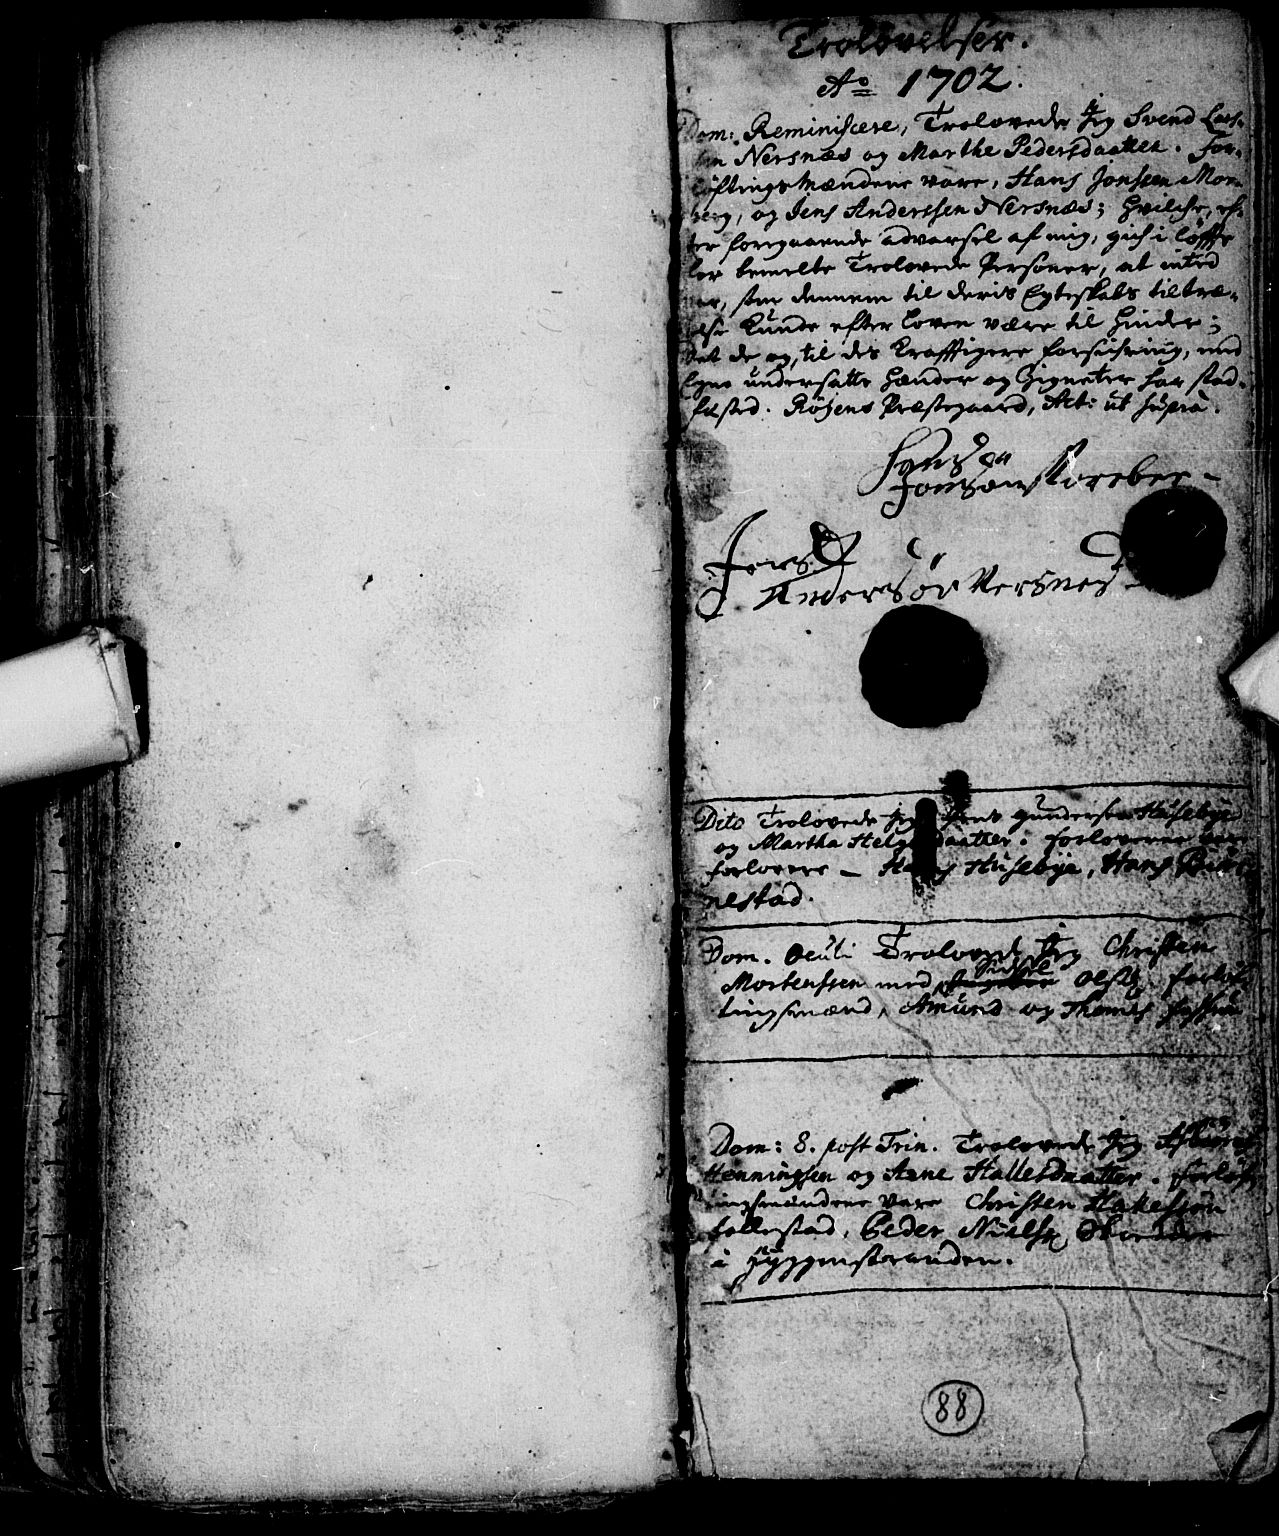 Trolovelser.
Ao 1702.
Dom: Reminiscere, Trolovede Jeg Svend Lars-
sen Nersnæs og Marthe Pedersdaatter. For-
løftingsmændene vare, Hans Jonssen Mor-
berg, og Jens Anderssen Nersnæs; hvilche, ef-
ter foregaaende advarsel af mig, gich i løffte
for bemelte Trolovede Personer, at inted
var, som dennem til deris Egteskabs tiltræ-
delse kunde efter loven være til hinder;
Det de og, til des krafftigere forsichring, med
Egne undersatte hænder og Zigneter har stad-
fæsted. Røkens Præstegaard, Act: ut supra.
Hans
Jonsøn Moreber
Jens
Andersøn Nersnes
Dito Trolovede Jeg Gundersen Husebye
og Martha Helgesdaatter. forloverne
forlovere — Hans Husebye, Hans
nestad.
Dom. Oculi Trolovede Jeg Christen
Mortenssen med Sidsel Olsd. forløf-
tingsmænd, Amund og Thomes
Dom: 8. post Trin. Trolovede Jeg
Henningsen og Anne Hallesdaatter. forløft-
ingsmændene vare Christen Hallessøn
follestad, Peder Nielss. Skredder
i Hyggenstranden.
88